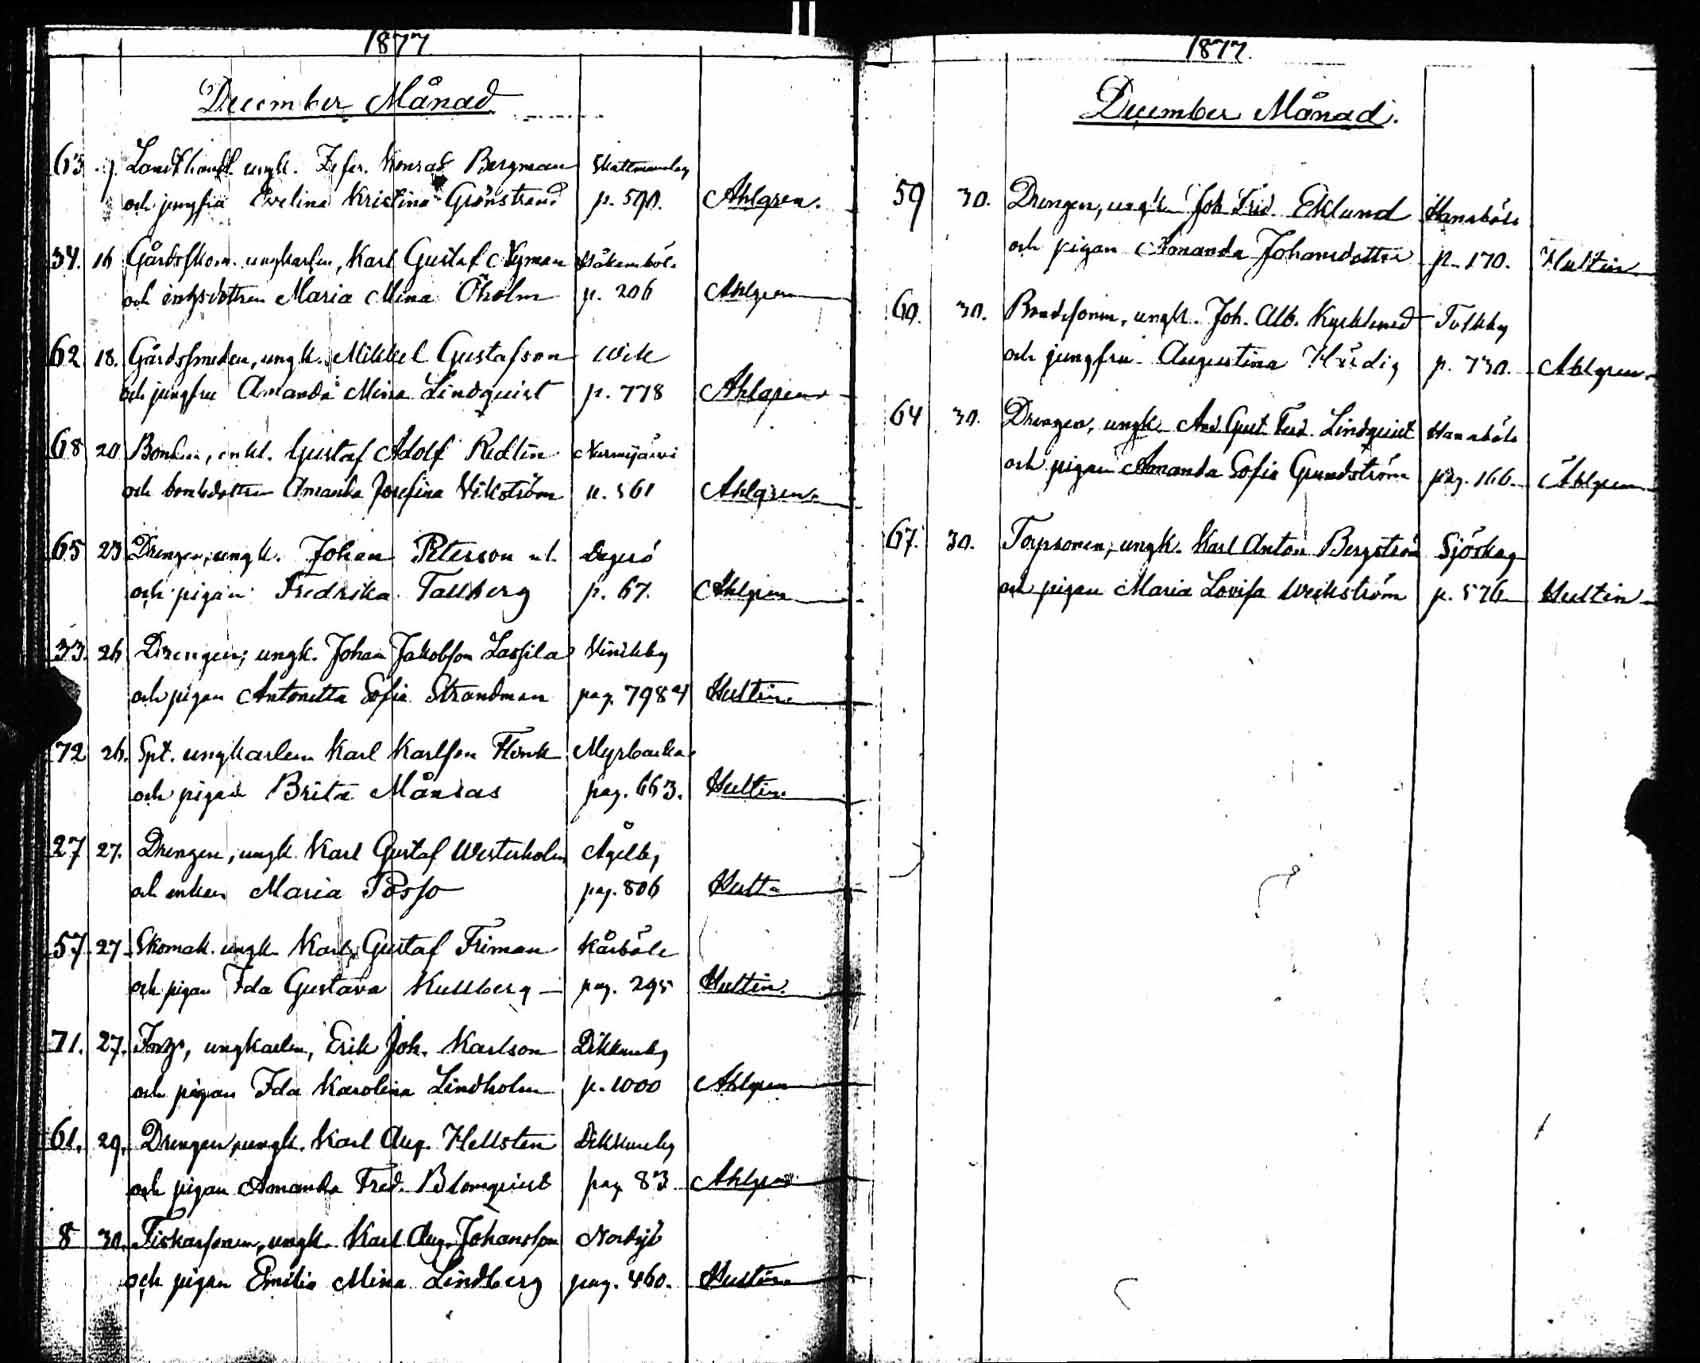 1877
December Månad
63 9. Landthandl. ungk. Zefr. Konrad Bergman Skattmansby
och jungfru Evelina Kristina Grönstrand p. 590. Ahlgren.
34. 16 ungkarlen, Karl Gustaf Nyman
och Maria Mina Öholm p. 206 Ahlgren
62 18. Gårdssmeden, ungk. Mikkel Gustafson Wik
och jungfru Amanda Mina Lindquist p. 778 Ahlgren
68 20 Bonden, enkl. Gustaf Adolf Redlin Nurmijärvi
och bondedottren Amanda Josefina Vikström p. 561 Ahlgren
65 23 Drengen, ungk. Johan Peterson Degerö
och pigan Fredrika Tallberg p. 67. Ahlgren
33. 26 Drengen, ungk. Johan Jakobson Lassila Vinikby
och pigan Antonetta Sofia Strandman pag. 798 Hultin
72 26. Spt. ungkarlen Karl Karlson Flink Myrbacka
och pigan Brita Månsas pag. 663. Hultin
27 27. Drengen, ungk. Karl Gustaf Westerholm Ågelby
och enkan Maria Posso pag. 806 Hultin
57 27 Skomak. ungk. Karl Gustaf Friman Kårböle
och pigan Ida Gustava Kullberg pag. 295 Hultin.
71. 27. ungkarlen, Erik Joh. Karlson Dikkursby
och pigan Ida Karolina Lindholm p. 1000 Ahlgren
61. 29. Drengen, ungk. Karl Aug. Hellsten Dikkursby
och pigan Amanda Fred. Blomquist pag. 83 Ahlgren
8 30. Fiskarsonen, ungk. Karl Aug. Johansson Nordsjö
och pigan Emilia Mina Lindberg pag. 460. Hultin
1877.
December Månad.
59 30. Drengen, ungk. Joh. Frid. Eklund Hanaböle
och pigan Amanda Johansdotter p. 170. Hultin
60. 30. Bondesonen, ungk. Joh. Alb. Kyrklund Tolkby
och jungfru Augustina Härdig p. 730. Ahlgren
64 30. Drengen, ungk. And. Gust. Ferd. Lindquist Hanaböle
och pigan Amanda Sofia Grundström pag. 166. Ahlgren
67. 30. Torpsonen, ungk. Karl Anton Bergström Sjöskog
och pigan Maria Lovisa Weckström p. 576 Hultin